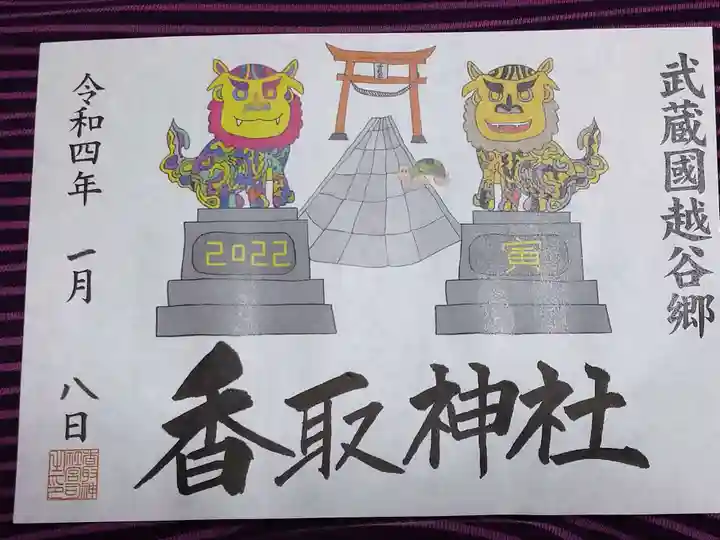 武蔵國越谷郷
2022
寅
香取神社
令和四年 一月 八日